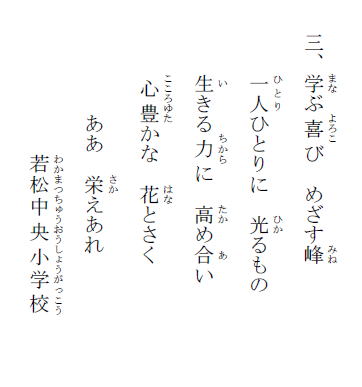 三、学ぶ喜び　めざす峰
一人ひとりに　光るもの
生きる力に　高め合い
心豊かな　花とさく
ああ　栄えあれ
若松中央小学校